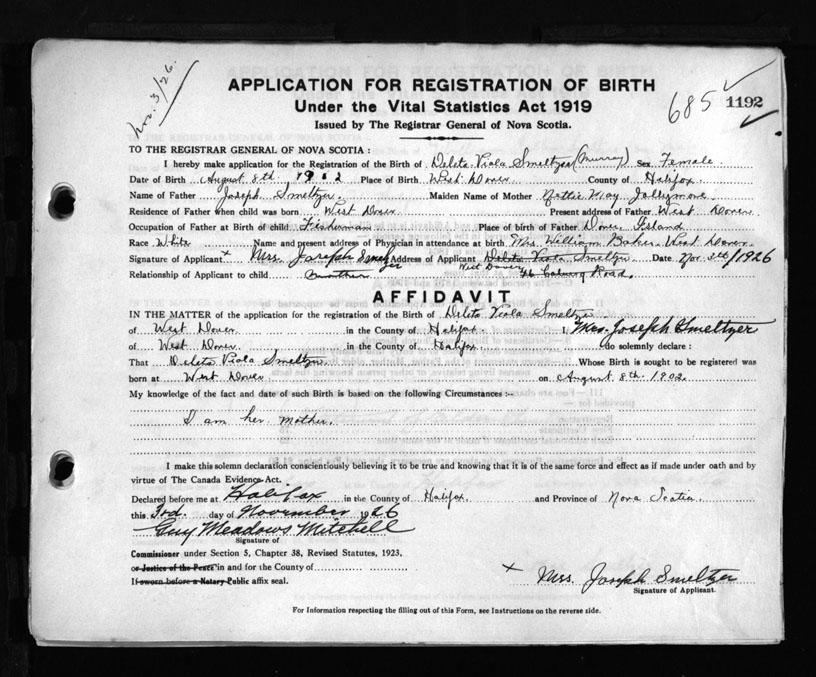 Nov. 3/26.
APPLICATION FOR REGISTRATION OF BIRTH
Under the Vital Statistics Act 1919
685 1192
Issued by The Registrar General of Nova Scotia.
TO THE REGISTRAR GENERAL OF NOVA SCOTIA :
I hereby make application for the Registration of the Birth of Delita Viola Smeltzer (Murray) Sex Female
Date of Birth August 8th 1902 Place of Birth West Dover County of Halifax
Name of Father Joseph Smeltzer Maiden Name of Mother Nettie May Jollymore
Residence of Father when child was born West Dover Present address of Father West Dover
Occupation of Father at Birth of child Fisherman Place of birth of Father Dover Island
Race White Name and present address of Physician in attendance at birth Mrs. William Baker, West Dover
Signature of Applicant x Mrs. Joseph Smeltzer Address of Applicant Delita Viola Smeltzer Date Nov 3rd/1926
West Dover Coburg Road.
Relationship of Applicant to child mother
AFFIDAVIT
IN THE MATTER of the application for the registration of the Birth of Delita Viola Smeltzer
of West Dover in the County of Halifax I, Mrs. Joseph Smeltzer
of West Dover in the County of Halifax do solemnly declare :
That Delita Viola Smeltzer Whose Birth is sought to be registered was
born at West Dover on August 8th 1902
My knowledge of the fact and date of such Birth is based on the following Circumstances :-
I am her mother.
I make this solemn declaration conscientiously believing it to be true and knowing that it is of the same force and effect as if made under oath and by
virtue of The Canada Evidence Act.
Declared before me at Halifax in the County of Halifax and Province of Nova Scotia
this 3rd. day of November 1926
Guy Meadows Mitchell
Signature of
Commissioner under Section 5, Chapter 38, Revised Statutes, 1923,
or Justice of the Peace in and for the County of
If sworn before a Notary Public affix seal.
x Mrs. Joseph Smeltzer
Signature of Applicant.
For Information respecting the filling out of this Form, see Instructions on the reverse side.